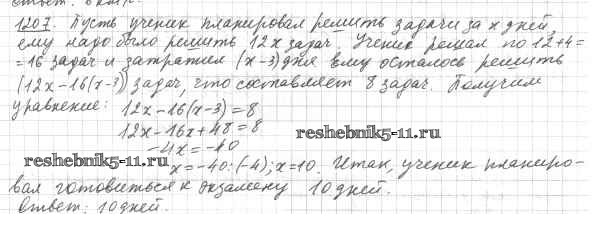 1207. Пусть ученик планировал решить задачи за x дней
ему надо было решить 12x задач. Ученик решал по 12+4=
=16 задач и затратил (x-3) дня ему осталось решить
(12x-16(x-3)) задач, что составляет 8 задач. Получим
уравнение: 12x-16(x-3)=8
12x-16x+48=8
reshebnik5-11.ru
-4x=-40
reshebnik5-11.ru
x=-40:(-4); x=10. Итак, ученик планиро-
вал готовиться к экзамену 10 дней.
Ответ: 10 дней.